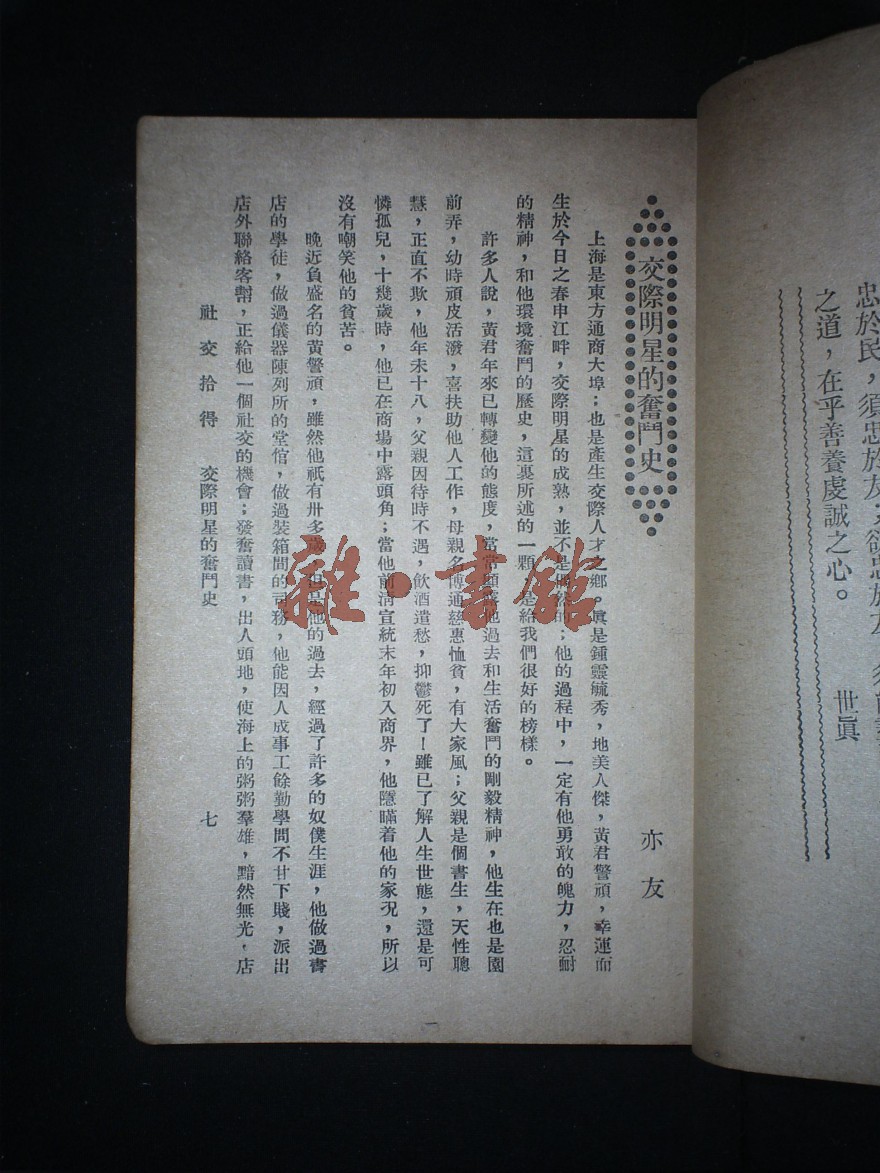 忠於民，須忠於友；欲忠於友，須
之道，在乎善養虔誠之心。
世眞
交際明星的奮鬥史
亦友
上海是東方通商大埠；也是產生交際人才之鄉。眞是鍾靈毓秀，地美人傑，黃君警頑，幸運而
生於今日之春申江畔，交際明星的成熟，並不是偶然的；他的過程中，一定有他勇敢的魄力，忍耐
的精神，和他環境奮鬥的歷史，這裏所述的一顆，是給我們很好的榜樣。
許多人說，黃君年來已轉變他的態度，當他過去和生活奮鬥的剛毅精神，他生在也是園
前弄，幼時頑皮活潑，喜扶助他人工作，母親名博通慈惠恤貧，有大家風；父親是個書生，天性聰
慧，正直不欺，他年未十八，父親因待時不遇，飲酒遣愁，抑鬱死了！雖已了解人生世態，還是可
憐孤兒，十幾歲時，他已在商場中露頭角；當他前淸宣統末年初入商界，他隱瞞着他的家況，所以
沒有嘲笑他的貧苦。
晚近負盛名的黃警頑，雖然他祇有卅多歲，但是他的過去，經過了許多的奴僕生涯，他做過書
店的學徒，做過儀器陳列所的堂倌，做過裝箱間的司務，他能因人成事工餘勤學問不甘下賤，派出
店外聯絡客幫，正給他一個社交的機會；發奮讀書，出人頭地，使海上的粥粥羣雄，黯然無光，店
社交拾得 交際明星的奮鬥史 七
一
雜·書館